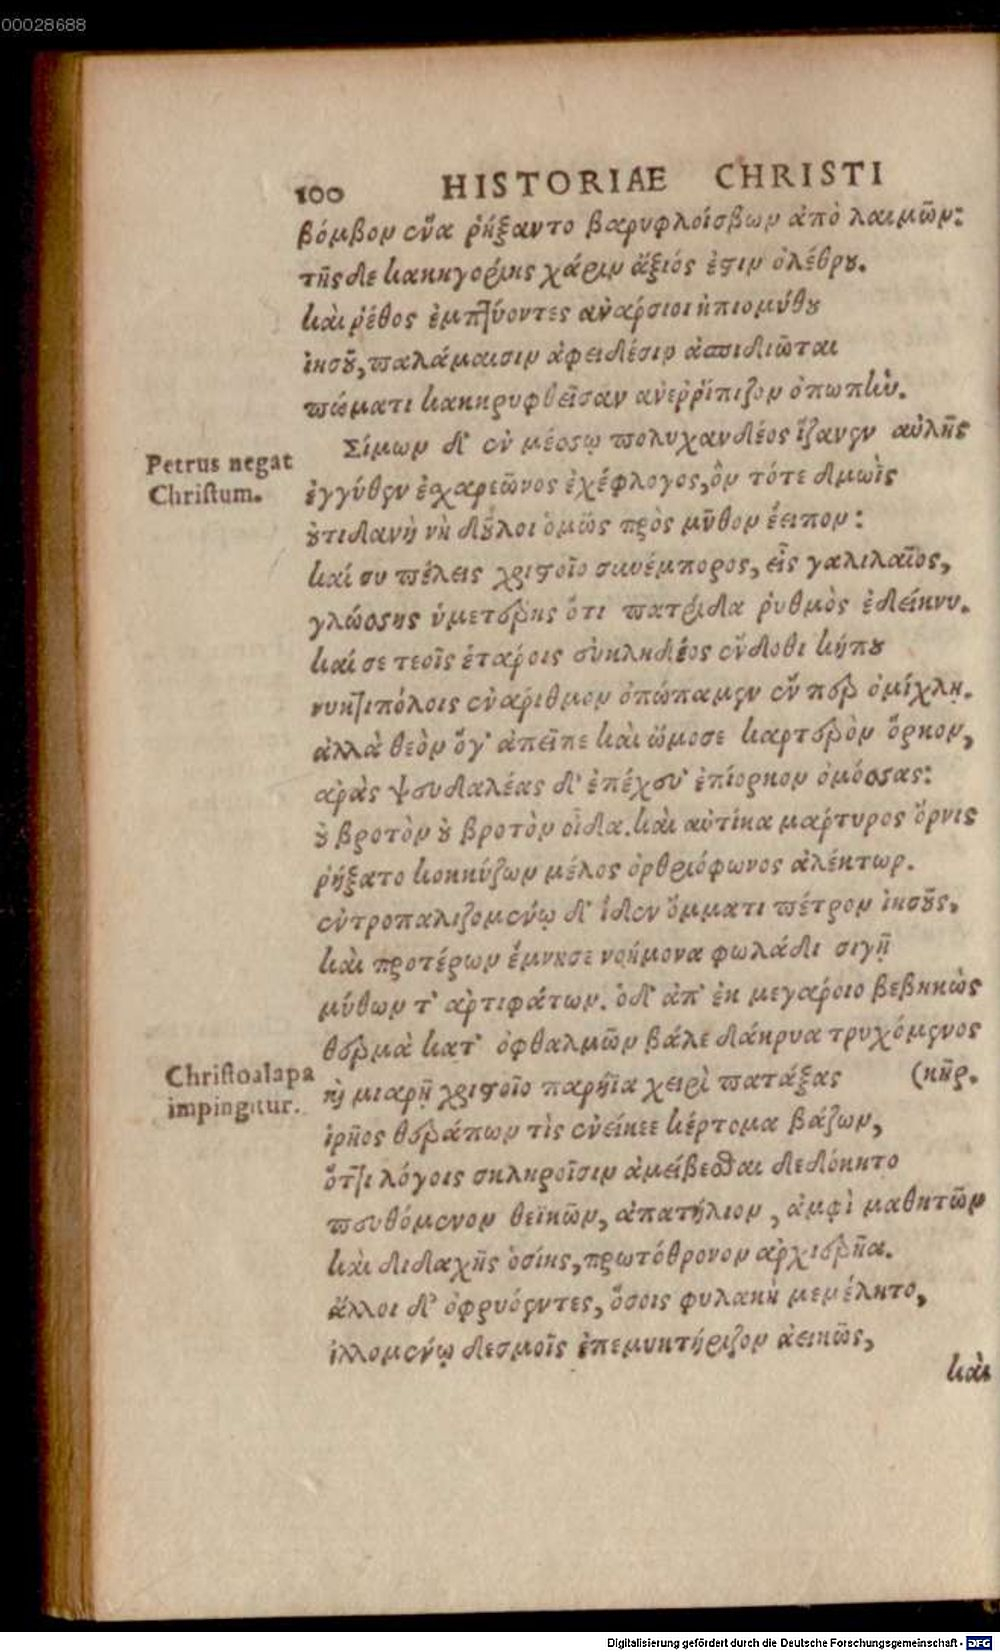 00028688
100 HISTORIAE CHRISTI
βόμβον ἕνα ῥήξαντο βαρυφλοίσβων ἀπὸ λαιμῶν:
τῆς δε κακηγορίης χάριν ἄξιός ἐστιν ὀλέθρου.
καὶ ῥέθος ἐμπτύοντες ἀνάρσιοι ἠπιομύθου
ἰησοῦ, παλάμαισιν ἀφειδέσιν ἀσπιδιῶται
πώματι κακκρυφθεῖσαν ἀνερρίπιζον ὀπωπήν.
Petrus negat
Christum.
Σίμων δ' ἐν μέσσῳ πολυχανδέος ἵζανεν αὐλῆς
ἐγγύθεν ἐσχαρεῶνος ἐχέφλογος, ὃν τότε δμωὶς
οὐτιδανὴ νὴ δοῦλοι ὁμῶς πρὸς μῦθον ἔειπον:
καί συ πέλεις χριστοῖο συνέμπορος, εἶς γαλιλαῖος,
γλώσσης ὑμετέρης ὅτι πατρίδα ῥυθμὸς ἐδείκνυ.
καί σε τεοῖς ἑτάροις συκληδέος ἔνδοθι κήπου
νυκτιπόλοις ἐνάριθμον ὀπώπαμεν ἔν περ ὀμίχλῃ.
ἀλλὰ θεὸν ὅγ' ἀπεῖπε καὶ ὤμοσε καρτερὸν ὅρκον,
ἀρὰς ψευδαλέας δ' ἐπέχευ' ἐπίορκον ὀμόσσας:
οὐ βροτὸν οὐ βροτὸν οἶδα. καὶ αὐτίκα μάρτυρος ὄρνις
ῥήξατο κοκκύζων μέλος ὀρθριόφωνος ἀλέκτωρ.
ἐντροπαλιζομένῳ δ' ἴδεν ὄμματι πέτρον ἰησοῦς,
καὶ προτέρων ἔμνησε νοήμονα φωλάδι σιγῇ
μύθων τ' ἀρτιφάτων. ὁδ' ἀπ' ἐκ μεγάροιο βεβηκὼς
θερμὰ κατ' ὀφθαλμῶν βάλε δάκρυα τρυχόμενος
Christo alapa
impingitur.
(κῆρ.
κὴ μιαρῇ χριστοῖο παρήϊα χειρὶ πατάξας
ἱρῆος θεράπων τὶς ἐνείκεε κέρτομα βάζων,
ὅττι λόγοις σκληροῖσιν ἀμείβεσθαι δεδόκητο
πευθόμενον θεϊκῶν, ἀπατήλιον, ἀμφὶ μαθητῶν
καὶ διδαχῆς ὁσίης, πρωτόθρονον ἀρχιερῆα.
ἄλλοι δ' ὀφρυόεντες, ὅσοις φυλακὴ μεμέλητο,
ἰλλομένῳ δεσμοῖς ἐπεμυκτήριζον ἀεικῶς,
καὶ
Digitalisierung gefördert durch die Deutsche Forschungsgemeinschaft - DFG